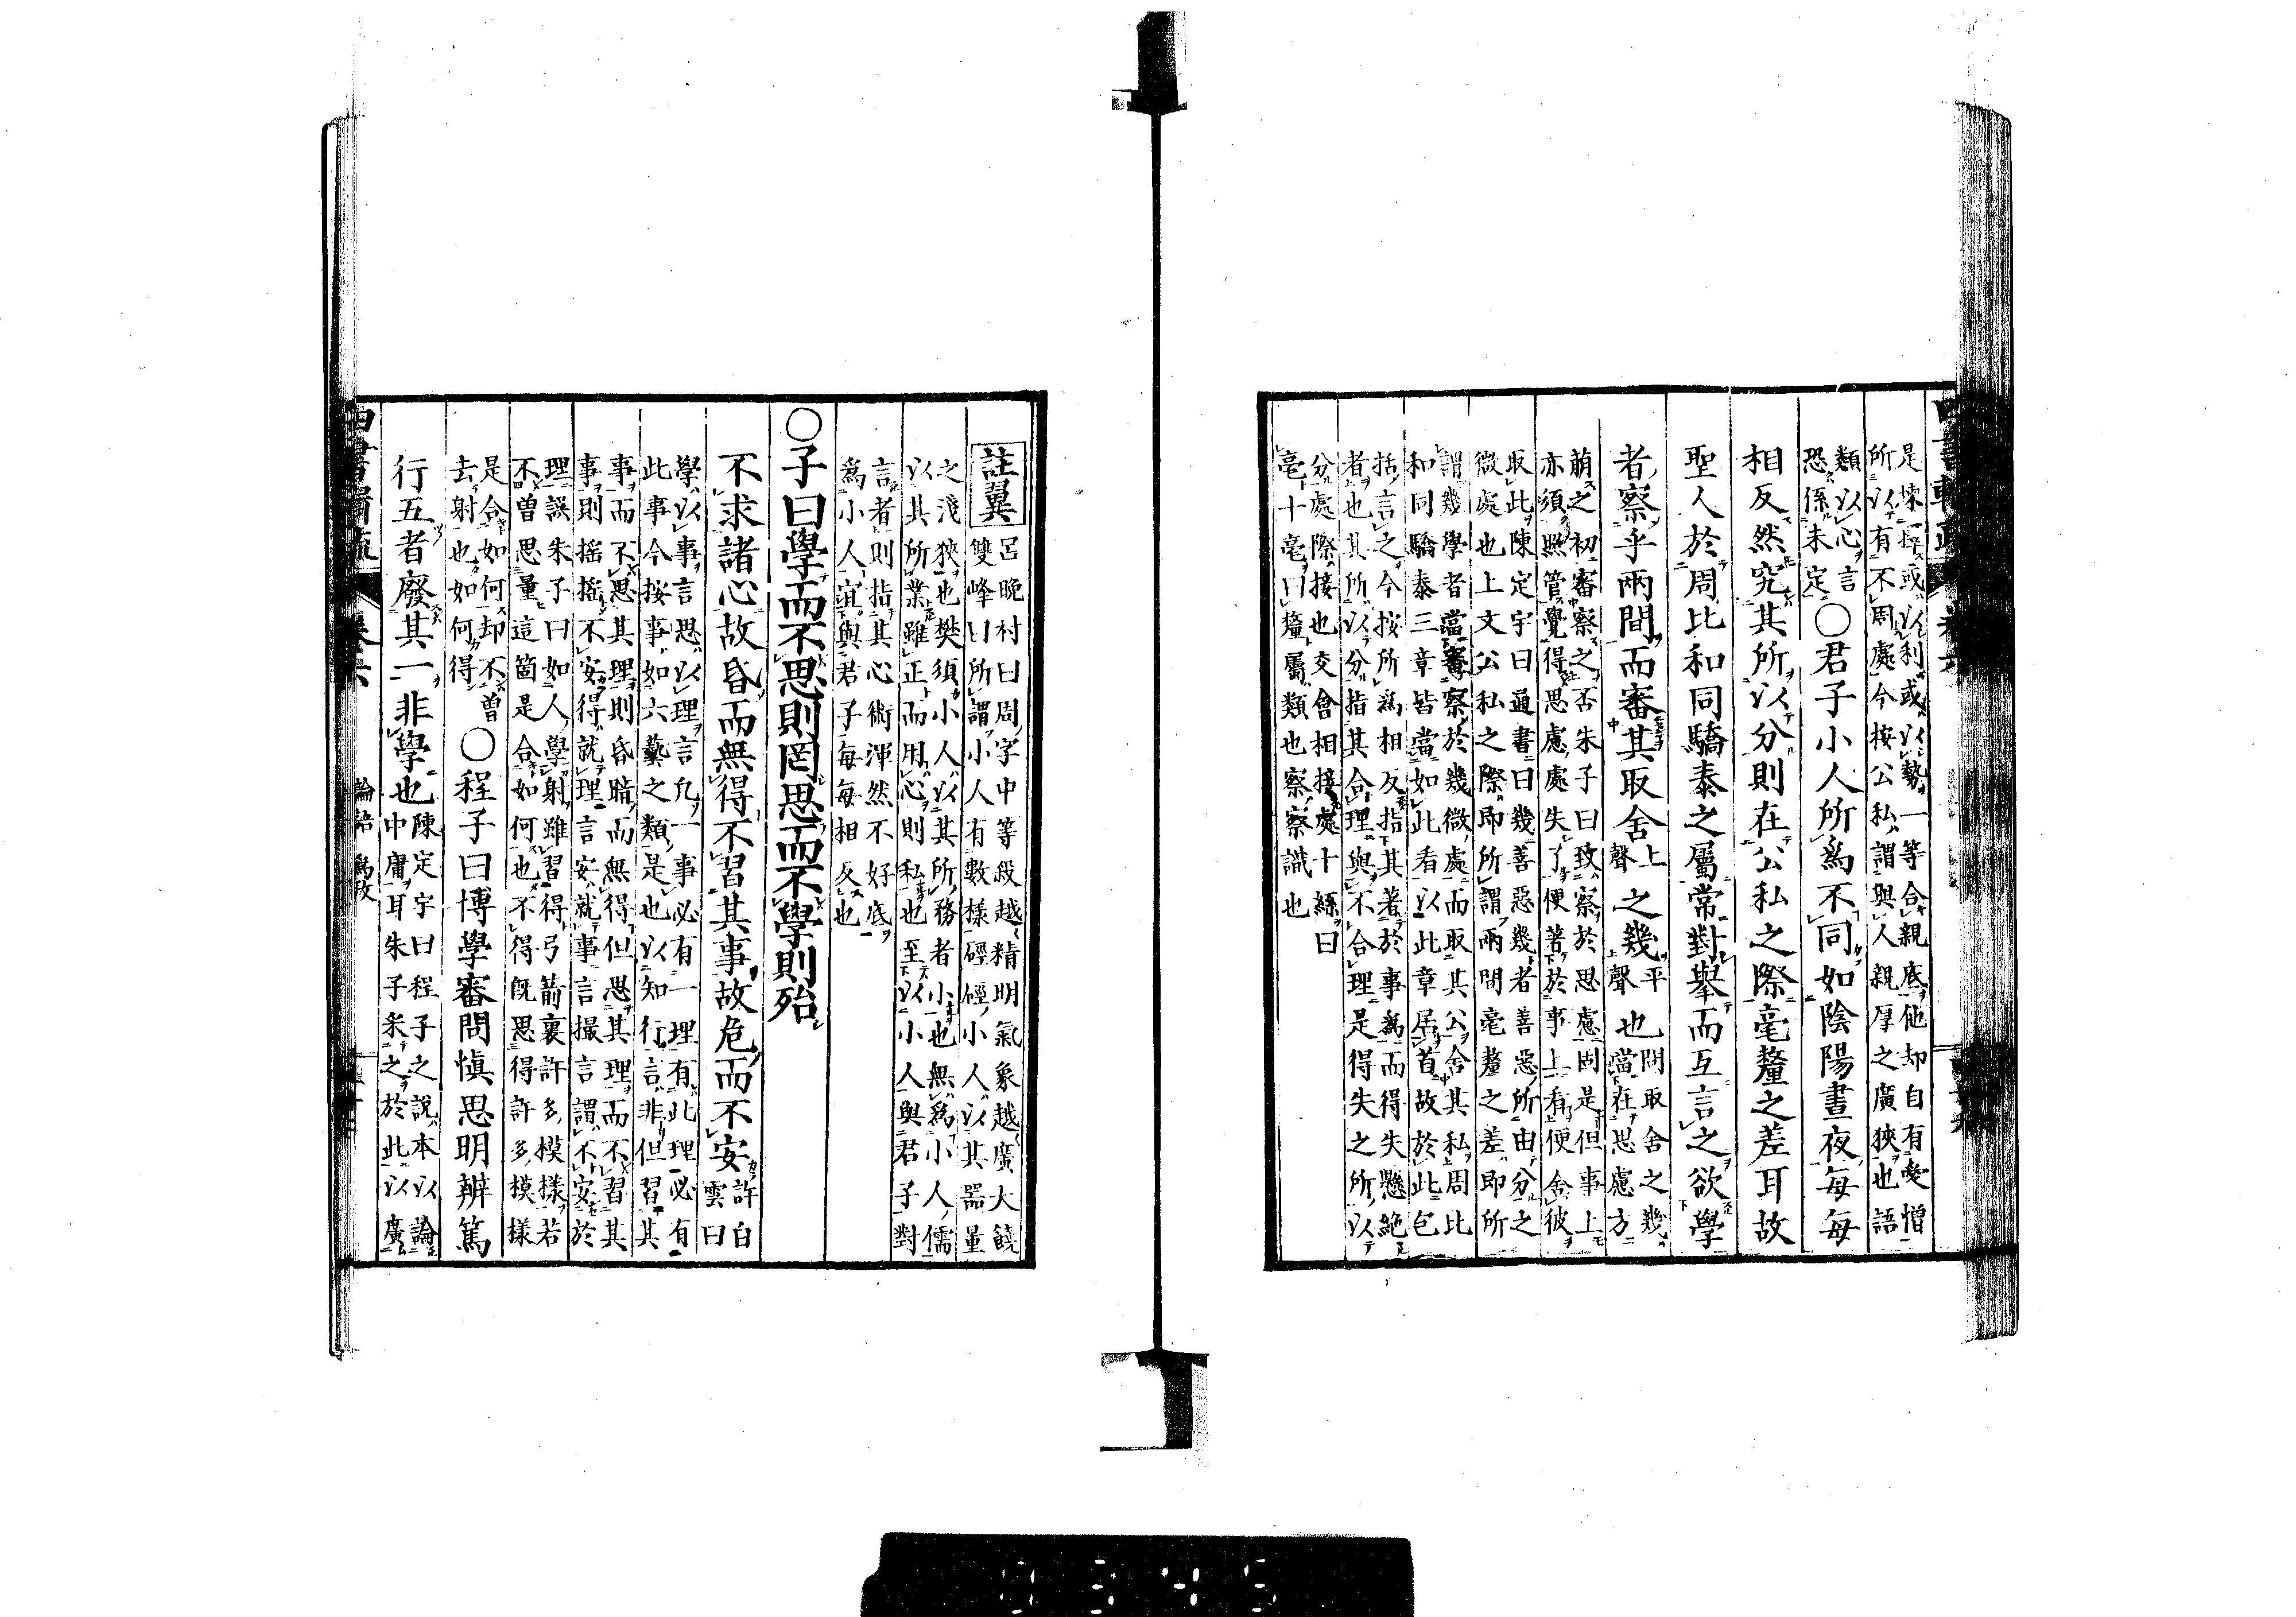 是揀擇或以利或以勢一等合親底他却自有愛憎
所以有不周處今按公私謂與人親厚之廣狹也語
類以心言
恐係未定
○君子小人所為不同如陰陽晝夜每每
相反然究其所以分則在公私之際毫釐之差耳故
聖人於周比和同驕泰之屬常對舉而互言之欲學
者察乎兩間而審其取舍
上聲
之幾
平聲
也
問取舍之幾
當在思慮方
萌之初審察之否朱子曰致察於思慮固是但事上
亦須照管覺得思慮處失了便著於事上看便舍彼
取此陳定宇曰通書曰幾善惡幾者善惡所由分之
微處也上文公私之際即所謂兩間毫釐之差即所
謂幾學者當審察於幾微處而取其公舍其私周比
和同驕泰三章皆當如此看以此章居首故於此包
括言之今按所為相反指其著於事為而得失懸絶
者也其所以分指其合理與不合理是得失之所以
分處際接也交會相接處十絲曰
毫十毫曰釐屬類也察察識也
註翼
呂晚村曰周字中等殺越精明氣象越廣大饒
雙峰曰所謂小人有數樣硜硜小人以其器量
之淺狹也樊須小人以其所務者小也無為小人儒
以其所業雖正而用心則私也至以小人與君子對
言者則指其心術渾然不好底
為小人宜與君子每每相反也
○子曰學而不思則罔思而不學則殆
不求諸心故昏而無得不習其事故危而不安
許白
雲曰
學以事言思以理言凡一事必有一理有此理必有
此事今按事如六藝之類是也以知行言非但習其
事而不思其理則昏暗而無得但思其理而不習其
事則搖搖不安得就理言安就事言撮言謂不安於
理誤朱子曰如人學射雖習得弓箭裏許多模樣若
不曾思量這箇是合如何也不得既思得許多模樣
是合如何却不曾
去射也如何得
○程子曰博學審問慎思明辨篤
行五者廢其一非學也
陳定宇曰程子之說本以論
中庸耳朱子采之於此以廣
論語 為政